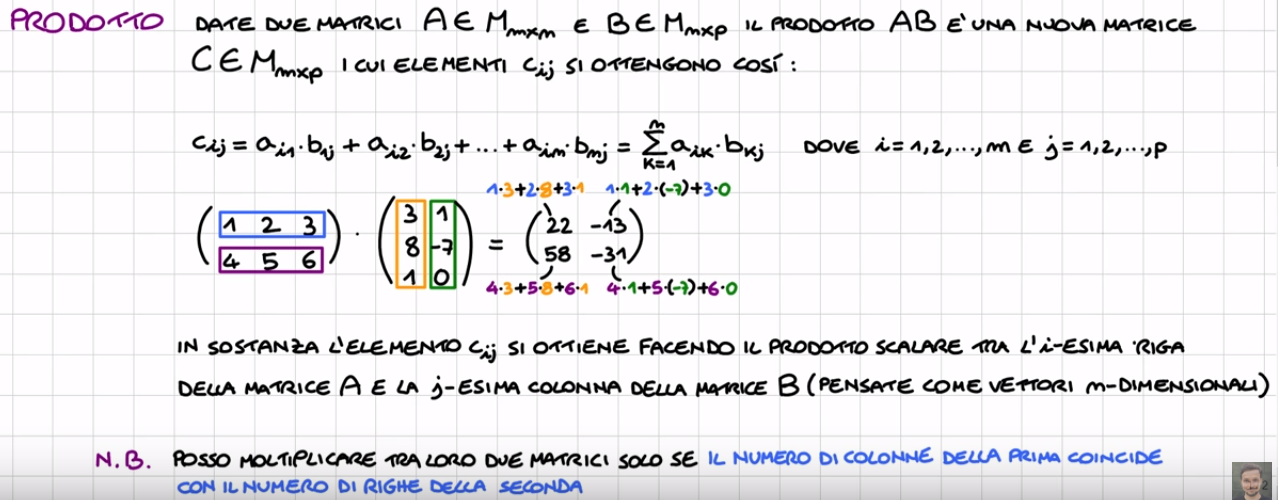 PRODOTTO DATE DUE MATRICI A∈M_{m×n} E B∈M_{n×p} IL PRODOTTO AB E' UNA NUOVA MATRICE
C∈M_{m×p} I CUI ELEMENTI c_{ij} SI OTTENGONO COSÍ:
c_{ij} = a_{i1}·b_{1j} + a_{i2}·b_{2j} + ... + a_{in}·b_{nj} = \sum_{k=1}^{n} a_{ik}·b_{kj} DOVE i=1,2,...,m E j=1,2,...,p
1·3+2·8+3·1 1·1+2·(-7)+3·0
(1 2 3) · (3 1) = (22 -13)
(4 5 6) (8 -7) (58 -31)
(1 0)
4·3+5·8+6·1 4·1+5·(-7)+6·0
IN SOSTANZA L'ELEMENTO c_{ij} SI OTTIENE FACENDO IL PRODOTTO SCALARE TRA L'i-ESIMA RIGA
DELLA MATRICE A E LA j-ESIMA COLONNA DELLA MATRICE B (PENSATE COME VETTORI n-DIMENSIONALI)
N.B. POSSO MOLTIPLICARE TRA LORO DUE MATRICI SOLO SE IL NUMERO DI COLONNE DELLA PRIMA COINCIDE
CON IL NUMERO DI RIGHE DELLA SECONDA